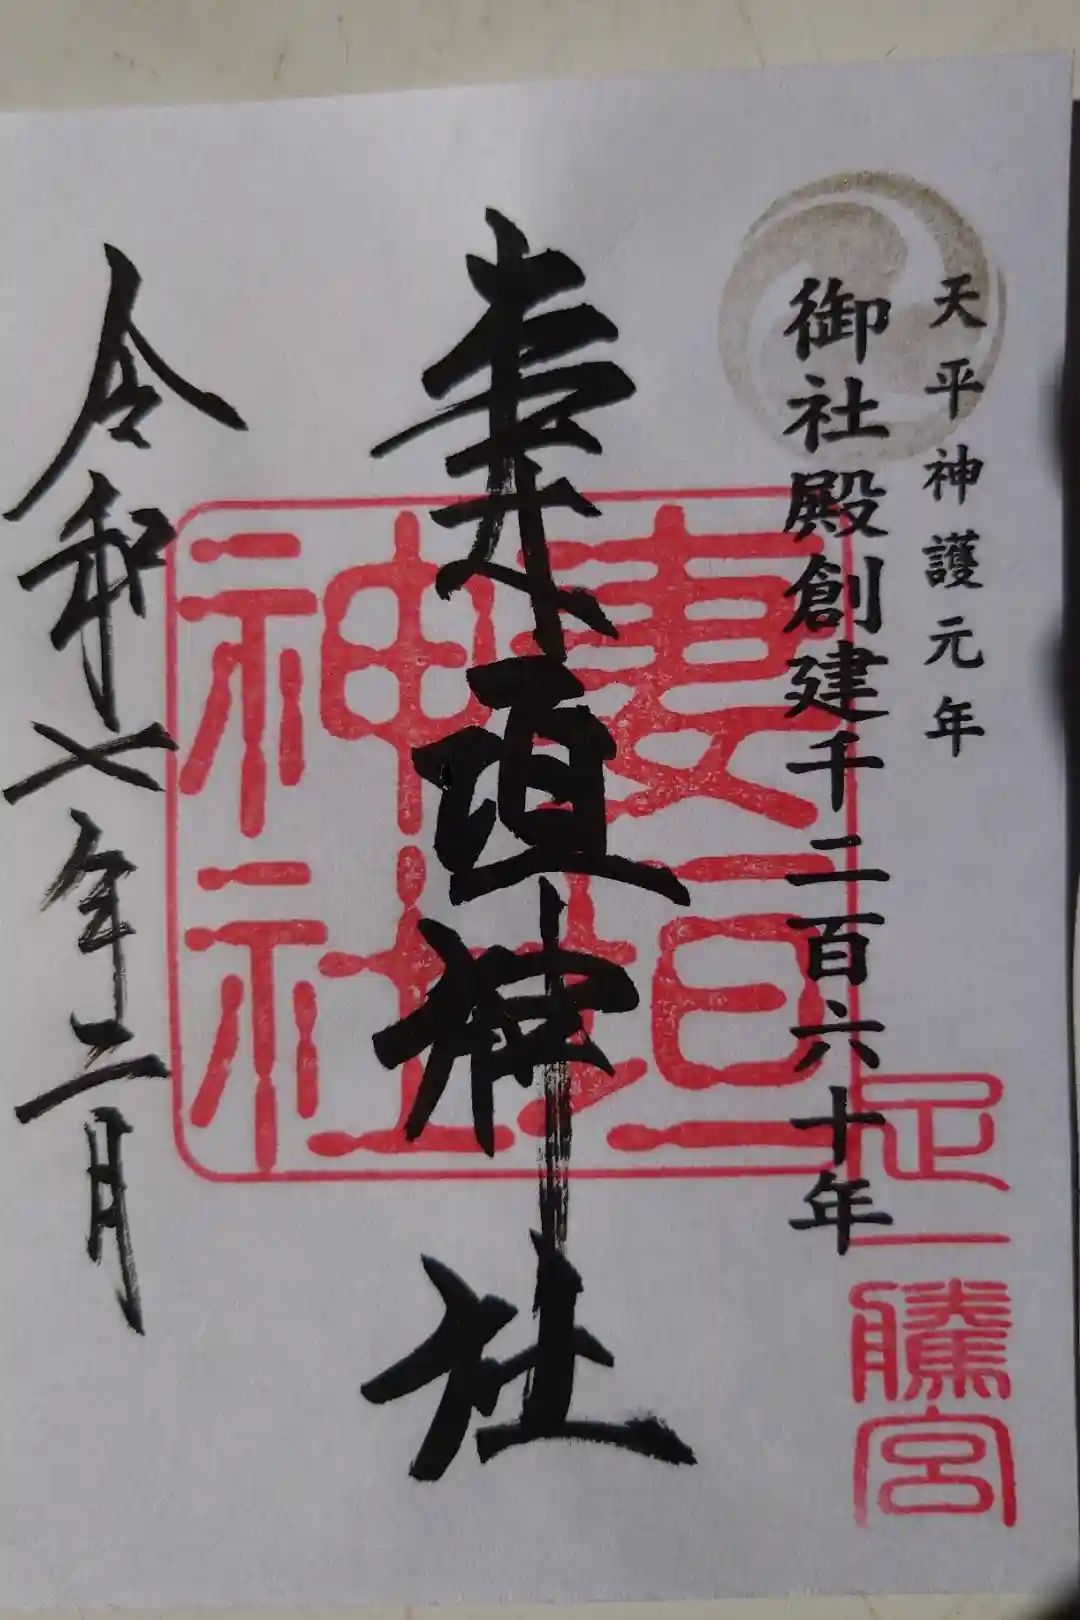 天平神護元年
御社殿創建千二百六十年
妻垣神社
令和七年二月
妻垣神社
足一騰宮